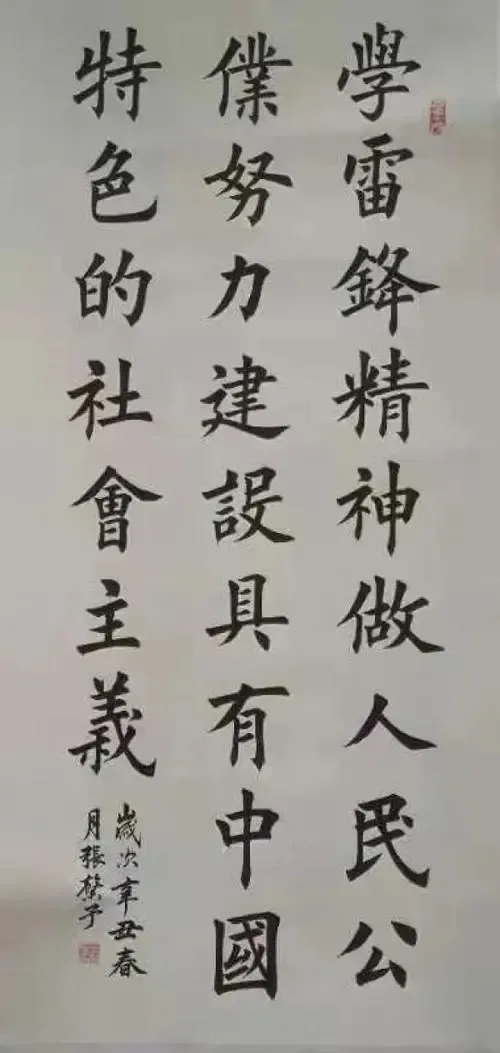 學雷鋒精神做人民公
僕努力建設具有中國
特色的社會主義
歲次辛丑春
月張子